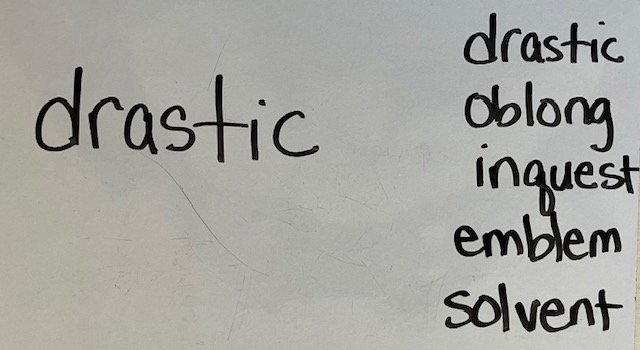 drastic
drastic
oblong
inquest
emblem
solvent